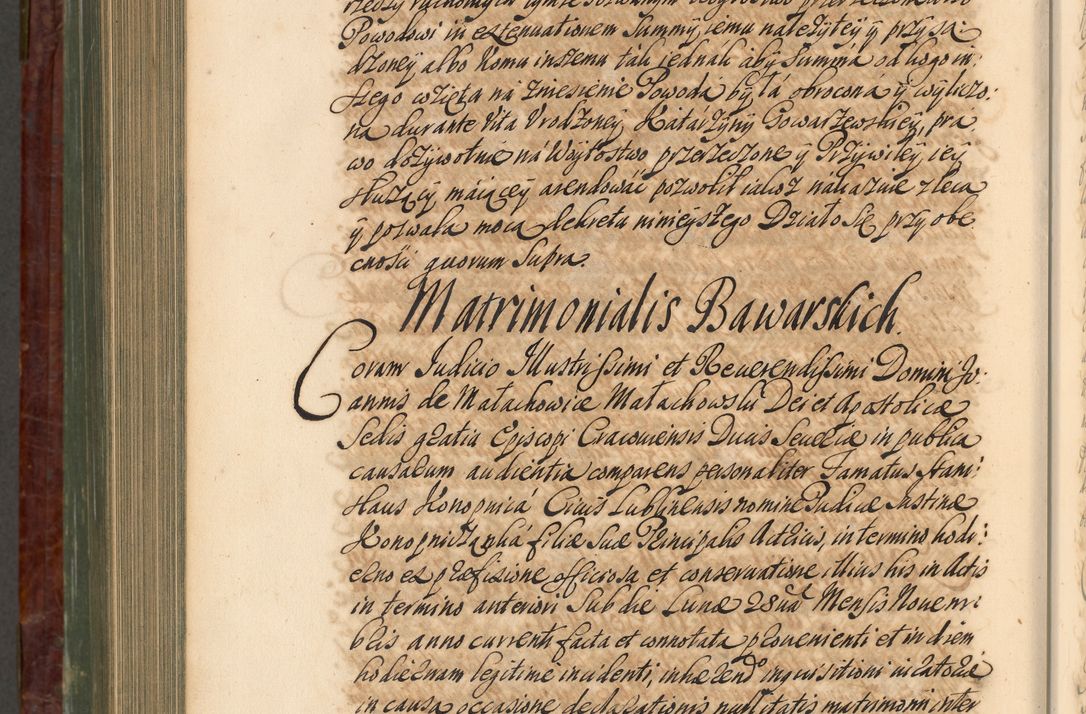 Powodowi in extenuationem Summy jemu należytey y przysą:
dzoney albo komu inszemu tak jednak aby Summa od kogo in:
szego wzięta na zniesienie Powoda była obrocona y wyliczo:
na durante vita Urodzoney Katarzyny Gowarzewskiey pra
wo dożywotnie na Woytostwo przerzeczone y Przywiley jey
służący maiącey arendować pozwolił jakoż nakazuie zleca
y pozwala mocą dekretu ninieyszego Działo się przy obe
cności quorum supra.
Matrimonialis Bawarskich.
Coram Judicio Illustrissimi et Reverendissimi Domini Jo:
annis de Małachowice Małachowski Dei et Apostolicæ
Sedis gratia Episcopi Cracoviensis Ducis Severiæ in publica
causarum audientia comparens personaliter Famatus Stani:
slaus Konopnica Civis Lublinensis nomine Pudicæ Justinæ
Konopniczanka filiæ suæ Principalis Actricis, in termino hodi:
erno ex præfixione officiosa et conservatione illius his in Actis
in termino anteriori Sub die Lunæ 28va Mensis Novem
bris anno currenti facta et connotata provenienti et in diem
hodiernam legitime incidenti, inhærendo inquisitioni
in causa occasione declarationis nullitatis matrimonii inter